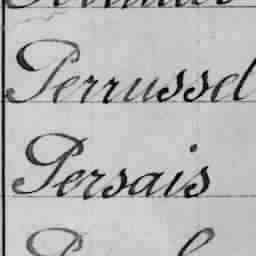 Perrussel
Persais